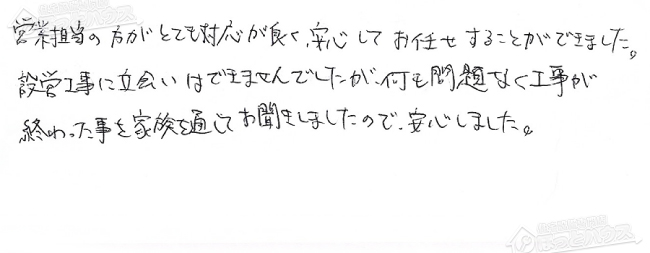 営業担当の方がとても対応が良く、安心してお任せすることができました。
設営工事に立会いはできませんでしたが、何も問題なく工事が
終わった事を家族を通してお聞きしましたので、安心しました。